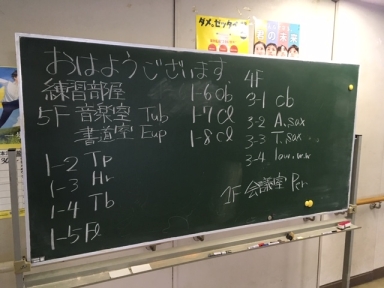 ダメ。ゼッタイ。
の未来
おはようございます
練習部屋
5F 音楽室 Tub
書道室 Eup
1-2 Tp
1-3 Hr
1-4 Tb
1-5 Fl
1-6 Ob
1-7 Cl
1-8 Cl
4F
3-1 Cb
3-2 A.sax
3-3 T.sax
3-4 low.w.w
1F 会議室 Per